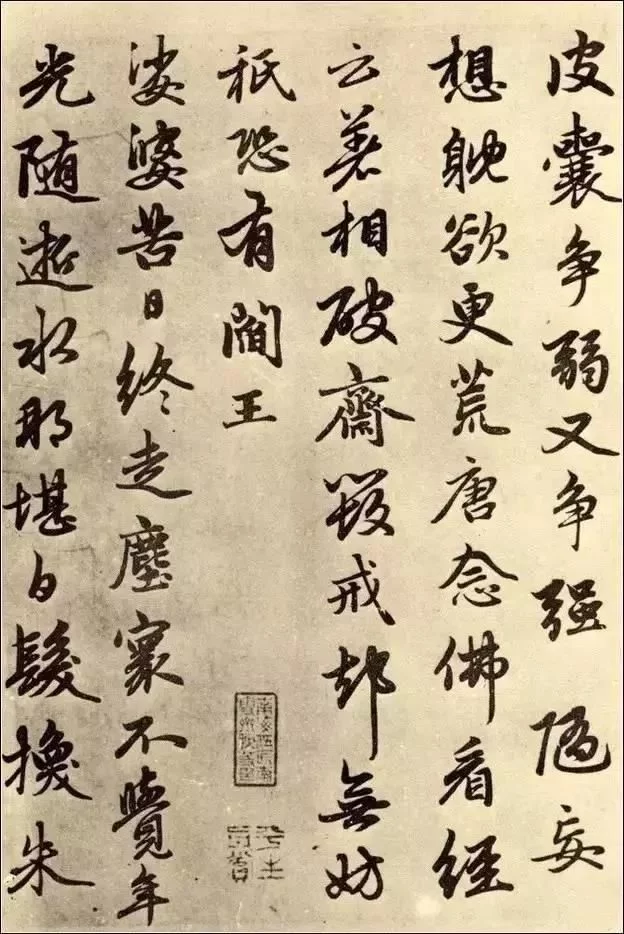 皮囊争弱又争强随妄
想躭欲更荒唐念佛看經
云着相破齋毁戒却無妨
祇恐有閻王
娑婆苦日终走塵寰不覺年
光随逝水那堪白髮换朱